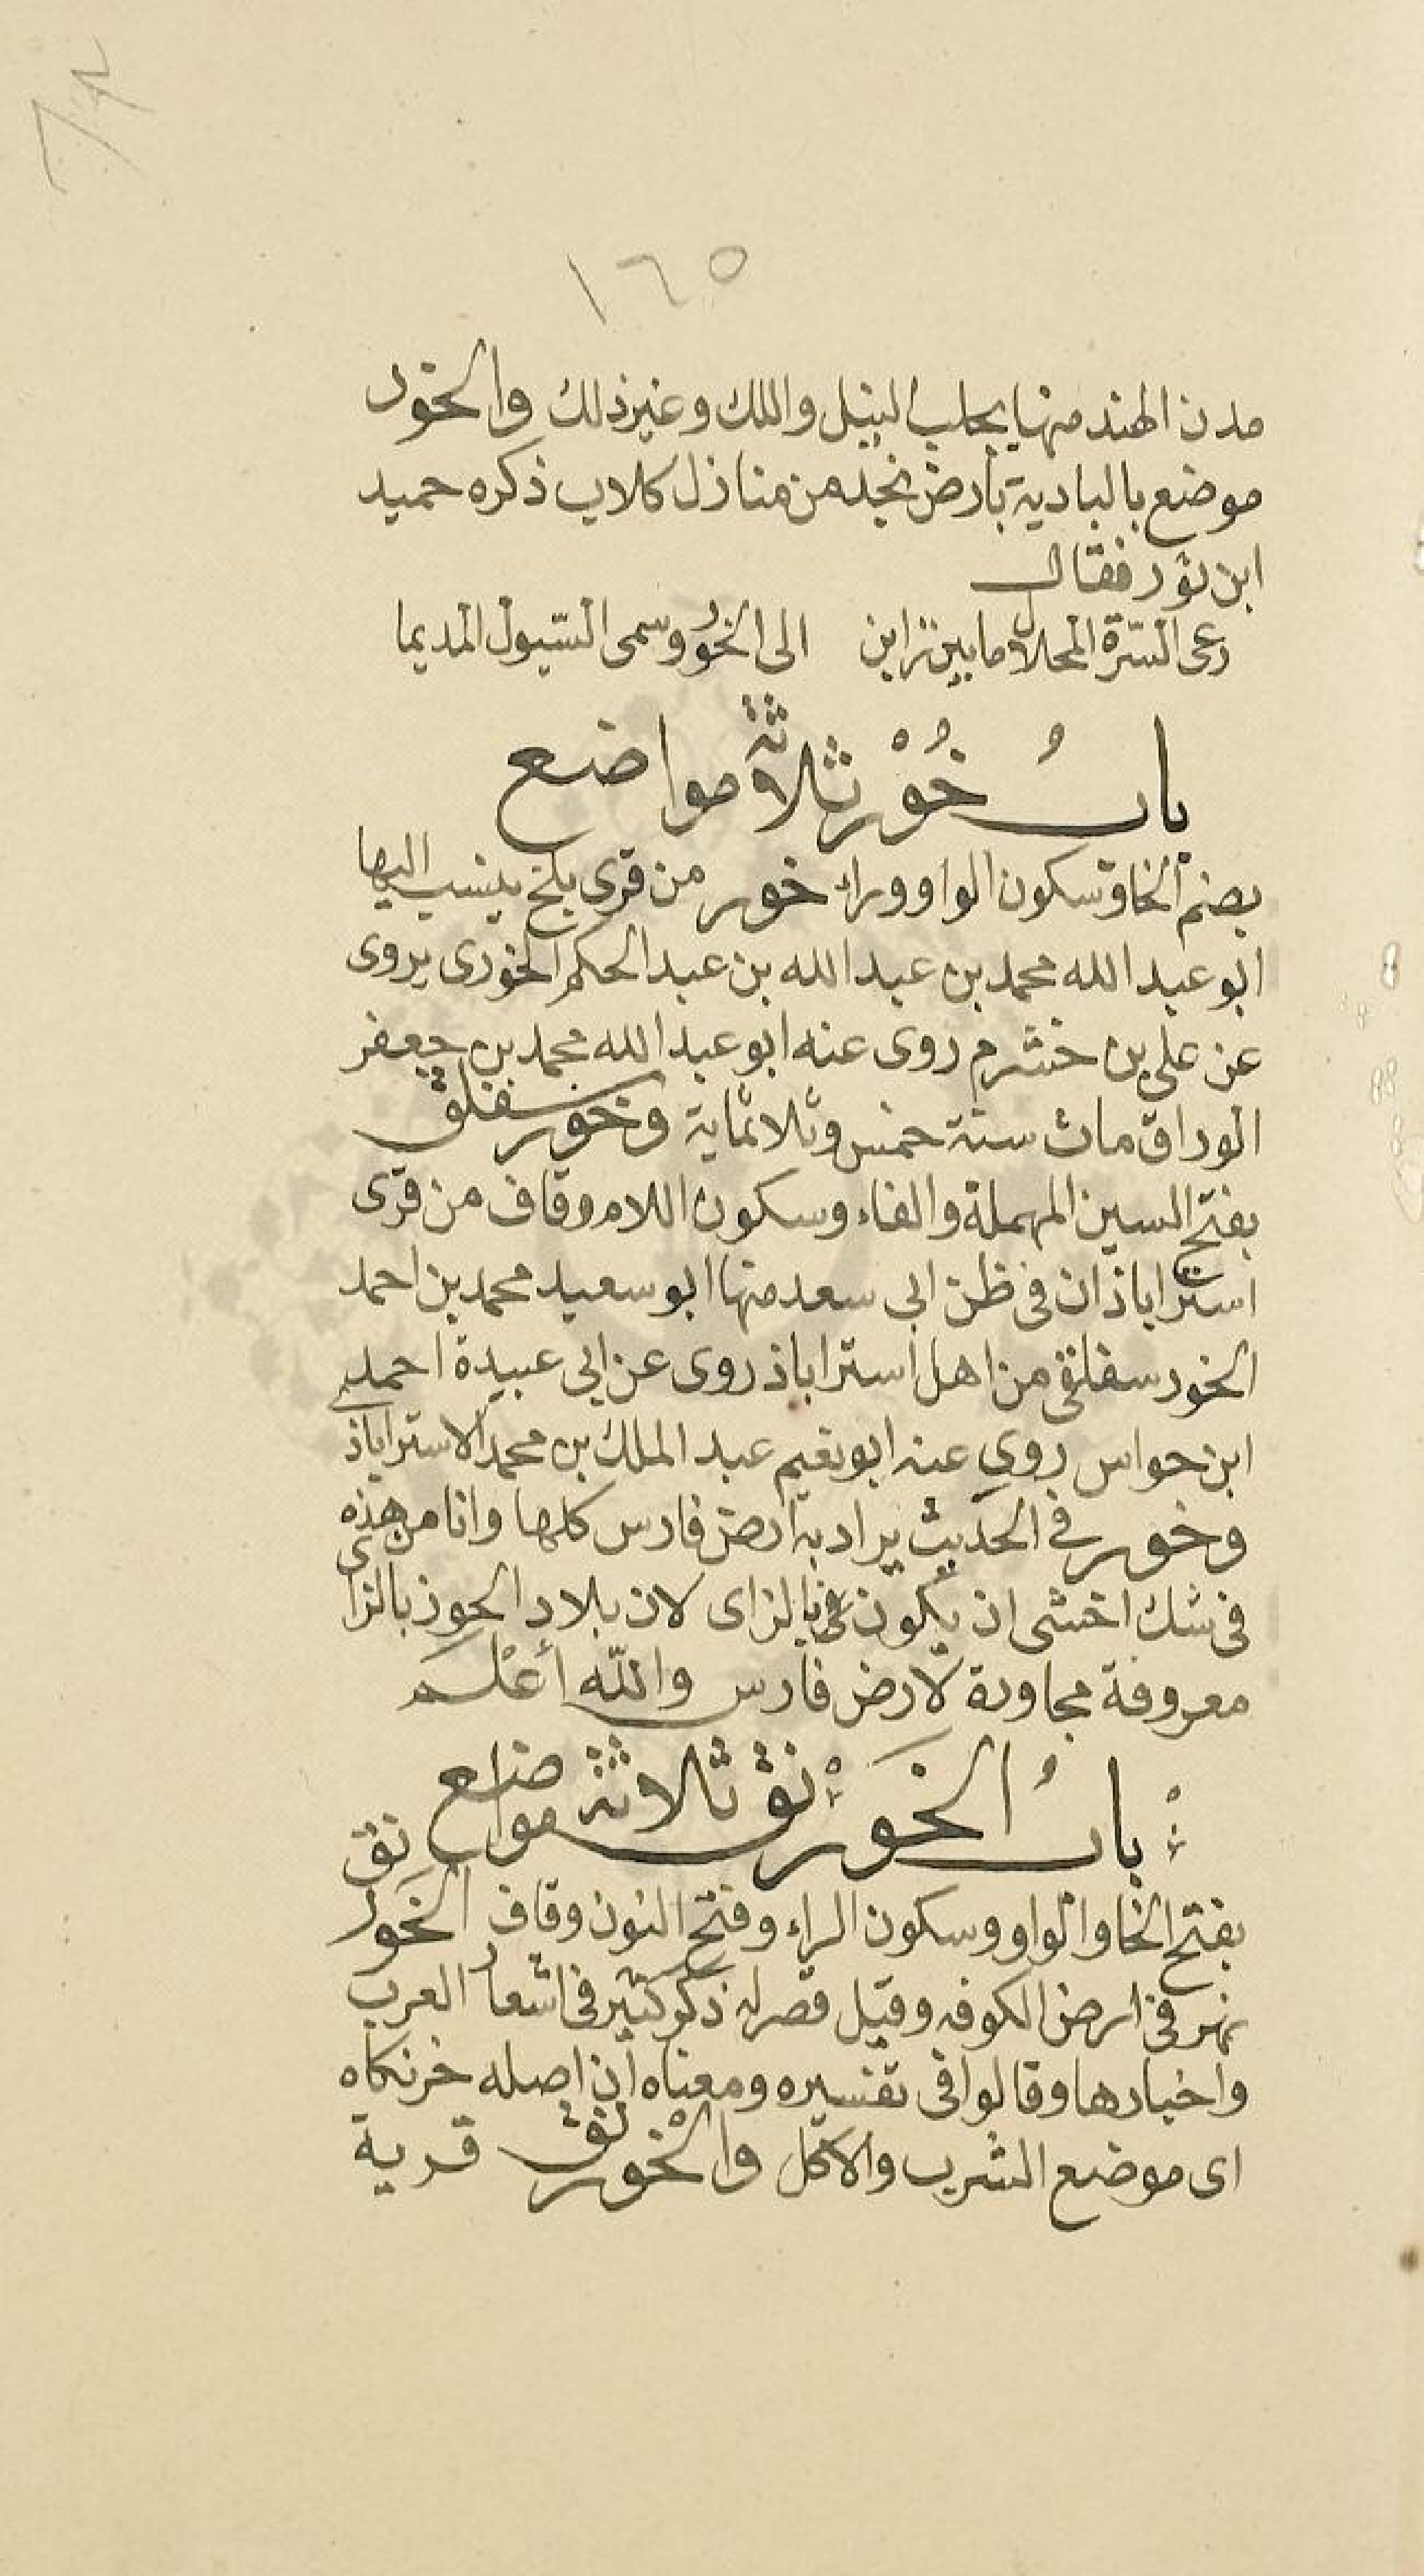 ١٦٥
مدن الهند منها يجلب النيل واللك وغير ذلك والخور
موضع بالبادية بارض نجد من منازل كلاب ذكره حميد
ابن ثور فقال
رعى السّرة المحلال ما بين زابن الى الخور وسمى السّيول المديما
بابُ خُوْر ثلاثة مواضع
بضم الخا وسكون الواو وراء خور من قرى بلخ ينسب اليها
ابو عبد الله محمد بن عبد الله بن عبد الحكم الخورى يروى
عن على بن خشرم روى عنه ابو عبد الله محمد بن جعفر
الوراق مات سنة خمس وثلاثماية وخور سفلق
بفتح السين المهملة والفاء وسكون اللام وقاف من قرى
استراباذ ان فى ظن ابى سعد منها ابو سعيد محمد بن احمد
الخور سفلقى من اهل استراباذ روى عن ابى عبيدة احمد
ابن حواس روى عنه ابو نعيم عبد الملك بن محمد الاستراباذى
وخور في الحديث يراد به ارض فارس كلها وانا من هذه
فى شك اخشى ان يكون بالزاى لان بلاد الخوز بالزاى
معروفة مجاورة لارض فارس والله أعلم
بابُ الخَوَرْنق ثلاثة مواضع
بفتح الخا والواو وسكون الراء وفتح النون وقاف الخَوَرنق
نهر فى ارض الكوفه وقيل قصر له ذكر كثير فى اشعار العرب
واخبارها وقالوا فى تفسيره ومعناه ان اصله خرنكاه
اى موضع الشرب والاكل والخورنق قرية